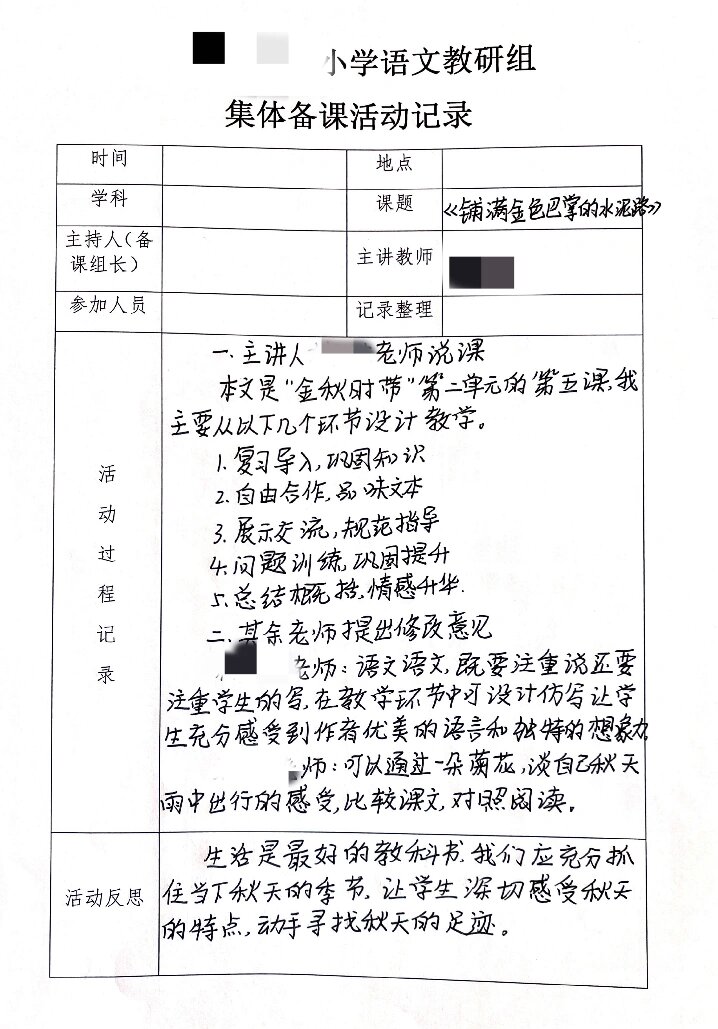 小学语文教研组
集体备课活动记录
时间 地点
学科 课题 《铺满金色巴掌的水泥路》
主持人（备课组长） 主讲教师
参加人员 记录整理
活动过程记录
一.主讲人 老师说课
本文是“金秋时节”第二单元的第五课,我
主要从以下几个环节设计教学。
1.复习导入,巩固知识
2.自由合作,品味文本
3.展示交流,规范指导
4.问题训练,巩固提升
5.总结概括,情感升华.
二.其余老师提出修改意见
老师:语文语文,既要注重说还要
注重学生的写,在教学环节中可设计仿写让学
生充分感受到作者优美的语言和独特的想象力
师:可以通过一朵菊花,谈自己秋天
雨中出行的感受,比较课文,对照阅读。
活动反思
生活是最好的教科书.我们应充分抓
住当下秋天的季节,让学生深切感受秋天
的特点,动手寻找秋天的足迹。